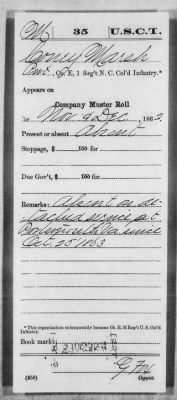 M | 35 | U.S.C.T.
Corey Marsh
Pvt., Co. E, 1 Reg't N. C. Col'd Infantry.*
Appears on
Company Muster Roll
for Nov & Dec, 1863.
Present or absent Absent
Stoppage, $ 100 for
Due Gov't, $ 100 for
Remarks: Absent on de-
tached service at
Portsmouth Va since
Oct. 25 1863
*This organization subsequently became Co. E, 35 Reg't U.S. Col'd
Infantry.
Book mark:
(358)
Copyist.